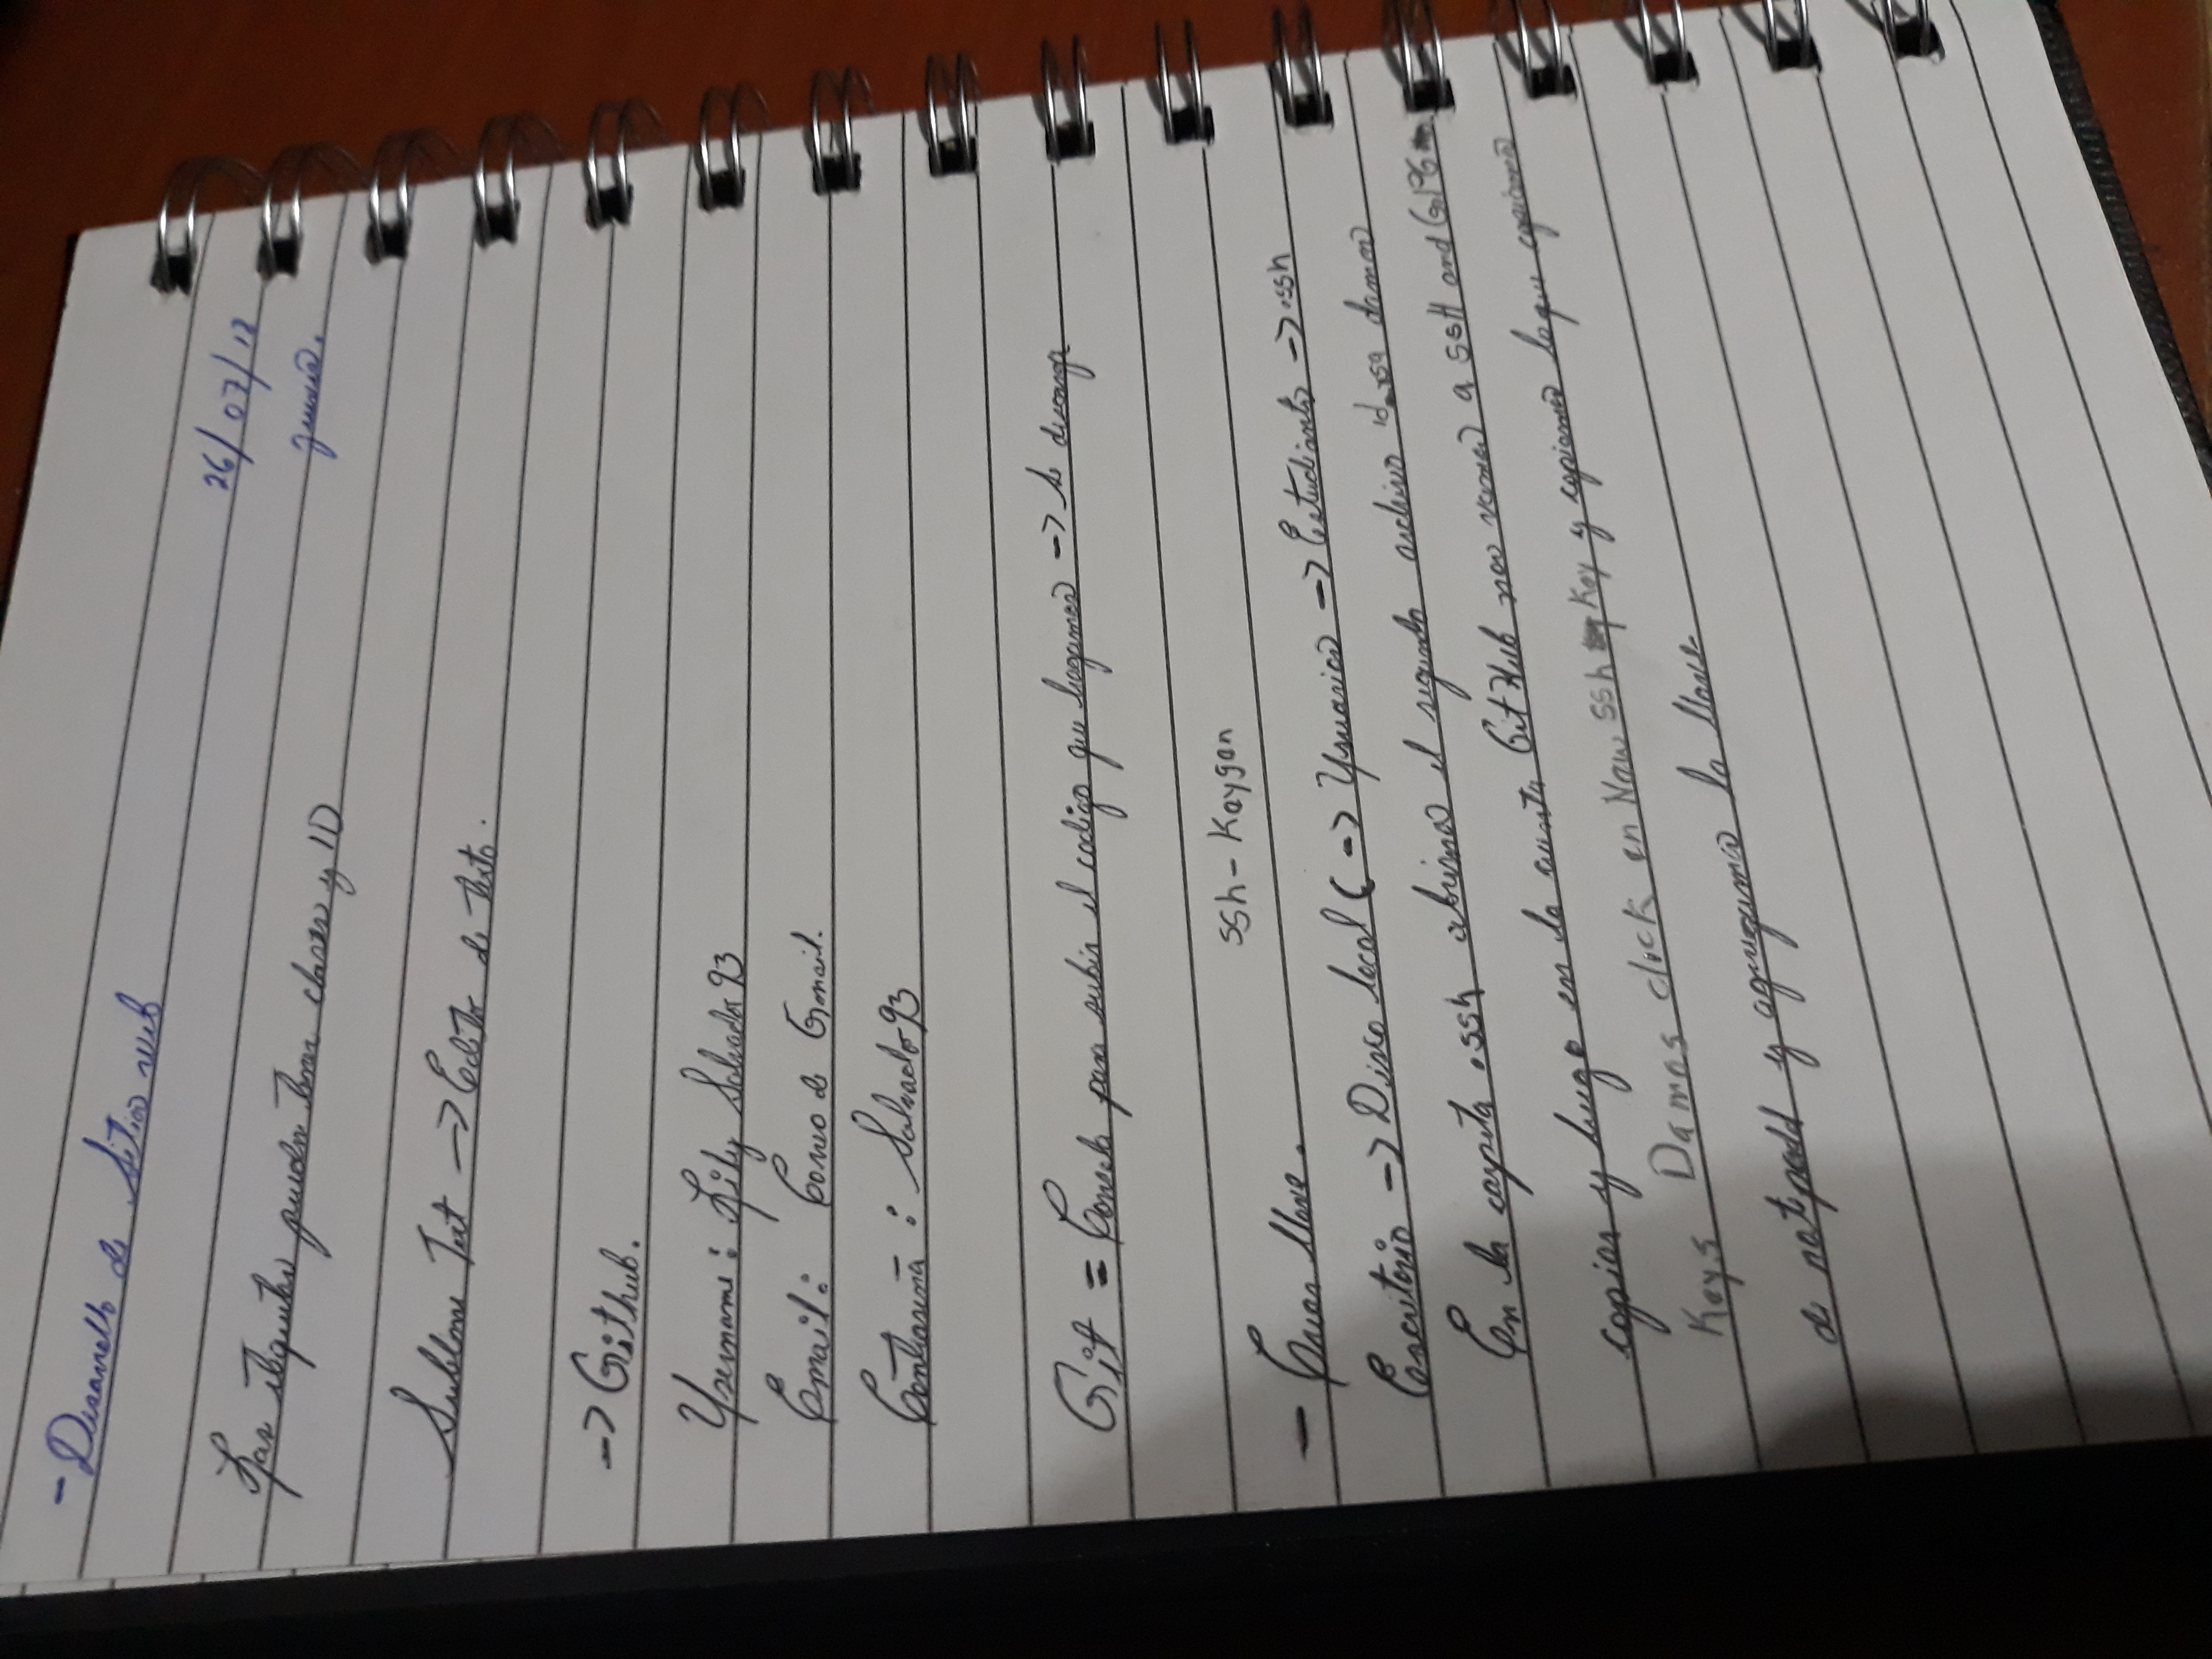 - Desarrollo de sitios web
26/07/18
jueves.
Las etiquetas pueden tener clases y ID
Sublime Text -> Editor de Texto.
-> Github.
Username: Lily Salvador93
Email: Correo de Gmail.
Contraseña: Salvador93
Git = Consola para subir el codigo que hagamos -> Se descarga
ssh-Keygen
- Crear llave.
Escritorio -> Disco local C -> Usuarios -> Estudiantes -> .ssh
En la carpeta .ssh abrimos el segundo archivo id_rsa damos
copiar y luego en la cuenta GitHub nos vamos a SSH and GPG
Keys Damos click en New ssh Key y copiamos lo que copiamos
de notpadd y agregamos la llave